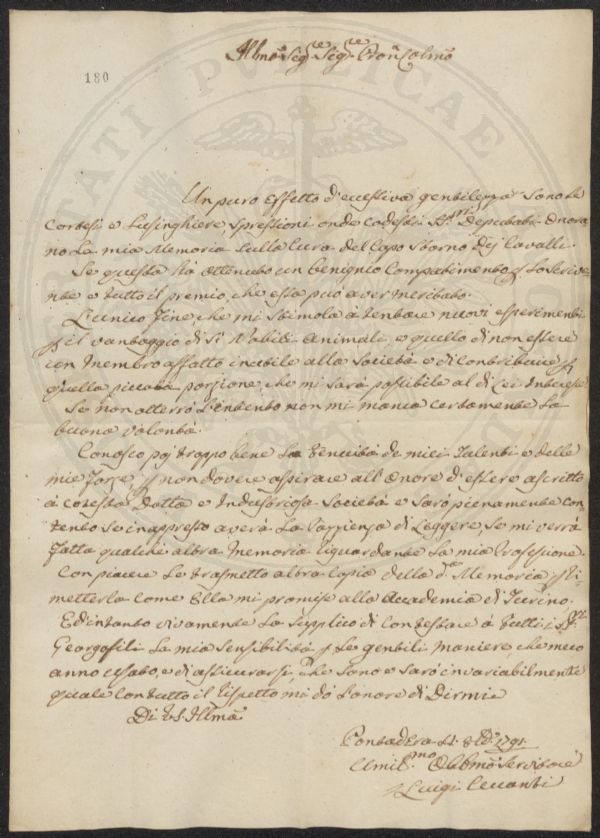 Illmo Sigre Sigre Pron Colmo
180
Un puro effetto d'eccessiva gentilezza sono le
Cortesi e lusinghiere spressioni onde codesti SSri Deputati onora
no la mia Memoria sulla Cura del Capo Storno dej Cavalli.
Se questa ha ottenuto un benignio Compatimento p lo scriv
nte e tutto il premio, che essa può aver meritato.
L'unico fine, che mi stimola à tentare nuovi esperimenti
p il vantaggio di sì Nobili Animali, e quello di non essere
un Membro affatto inutile alla Società e di contribuire p
quella piccola porzione, che mi sarà possibile al di Lei Interesse
Se non otterrò l'intento non mi manca certamente la
buona volontà.
Conosco poj troppo bene la tenuità de miei talenti e delle
mie forze p non dovere aspirare all'Onore d'essere ascritto
à cotesta Dotta e Industriosa Società e sarò pienamente con
tento se inappresso averà la sapienza di Leggere, se mi verrà
fatta qualche altra Memoria riguardante la mia Professione.
Con piacere le trasmetto altra Copia della da Memoria p ri
metterla come Ella mi promise alla Accademia di Turino;
Ed intanto vivamente la supplico di contestare à tutti i SSri
Georgofili la mia sensibilità p le gentili maniere che meco
anno usato, e di assicurarsi che sono e sarò invariabilmente
quale con tutto il rispetto mi dò l'onore di Dirmi
Di VS. Illma
Pontadera 8 1791
Umilmo Obbmo Servitore
Luigi Ceccanti
RATI PVBLICAE